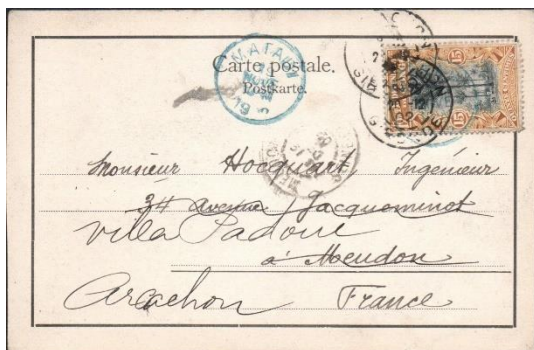 Carte postale.
Postkarte.
MATADI
15
15
MEUDON
Monsieur Hocquart, Ingénieur
34 avenue Jacqueminot
Villa Padoue
à Meudon
Arcachon France